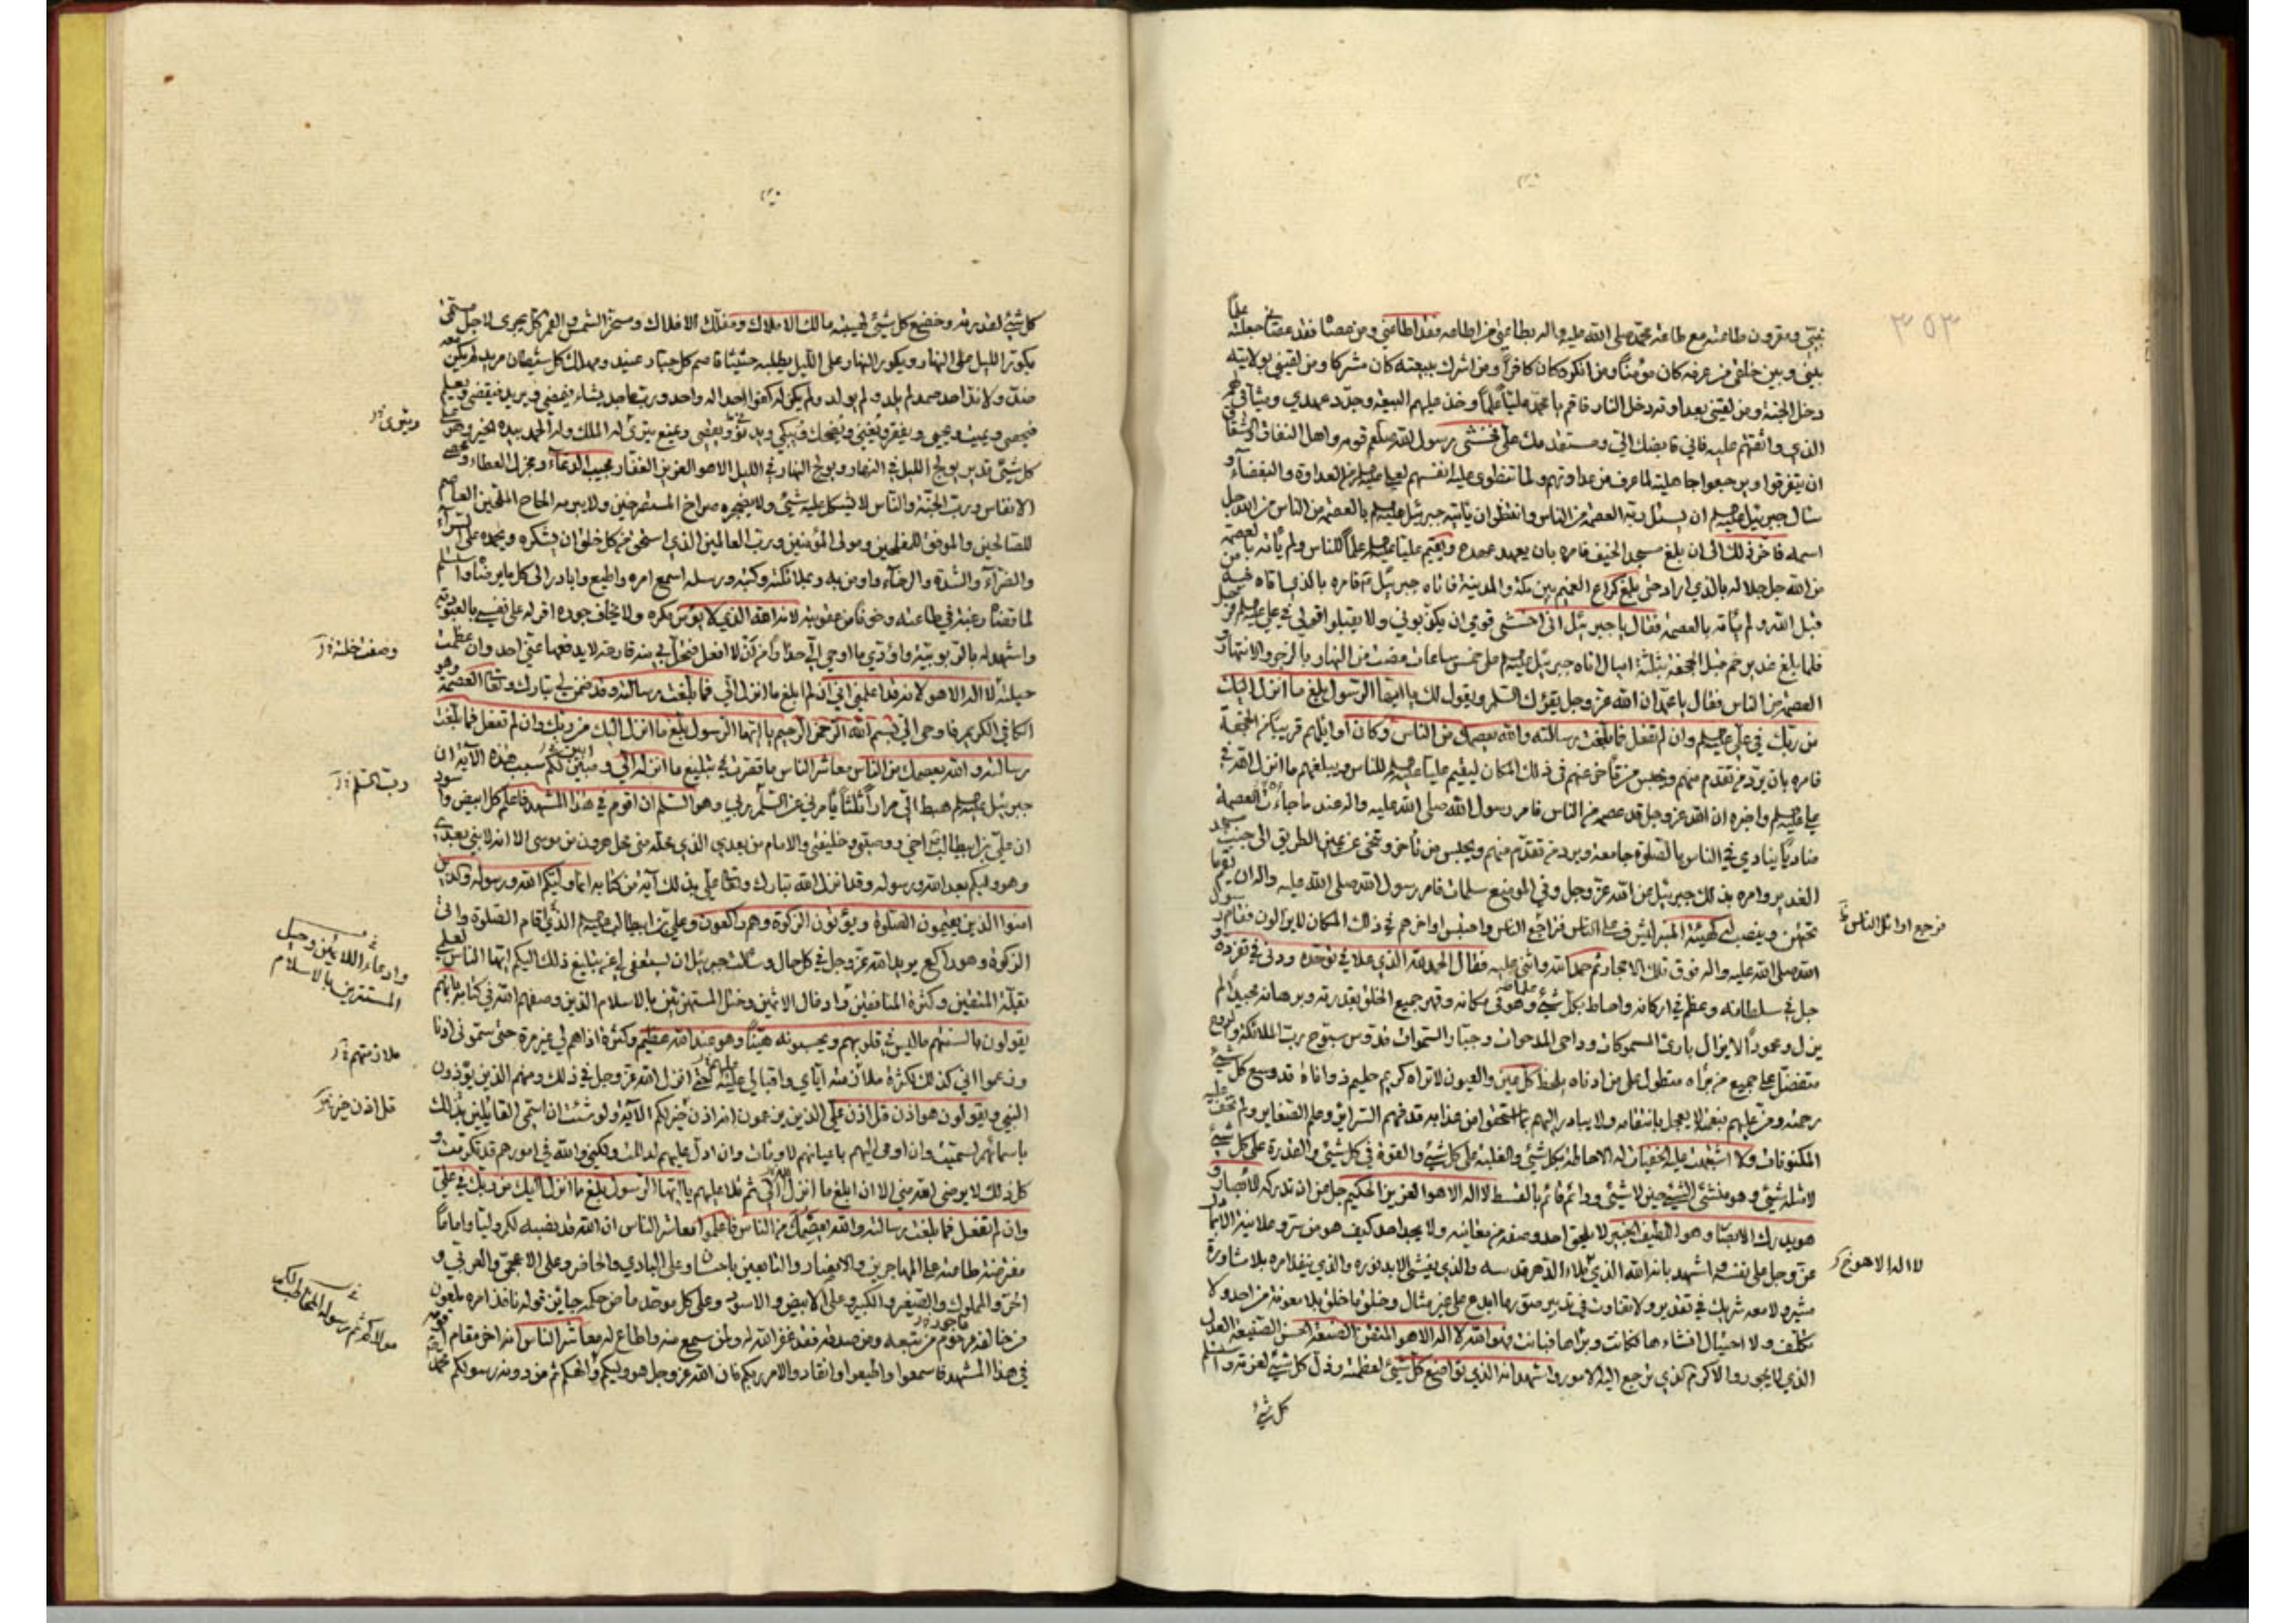 نبيّي ومقرون طاعته مع طاعة محمد صلى الله عليه واله بطاعتي من اطاعه فقد اطاعني ومن عصاه فقد عصاني جعلته علما
بيني وبين خلقي من عرفه كان مؤمنا ومن انكره كان كافرا ومن اشرك ببيعته كان مشركا ومن لقيني بولايته
دخل الجنة ومن لقيني بعداوته دخل النار فاقم يا محمد عليا علما وخذ عليهم البيعة وجدد عهدي وميثاقي لهم
الذي واثقتهم عليه فاني قابضك الي ومستقدمك علي فخشي رسول الله صلعم قومه واهل النفاق والشقاق
ان يتفرقوا ويرجعوا جاهلية لما عرف من عداوتهم ولما تنطوي عليه انفسهم لعلي من العداوة والبغضاء و
سأل جبرئيل ان يسئل ربه العصمة من الناس وانتظر ان ياتيه جبرئيل بالعصمة من الناس من الله جل
اسمه فاخر ذلك الى ان بلغ مسجد الخيف فامره بان يعهد عهده ويقيم عليا علما للناس ولم ياته بالعصمة
من الله جل جلاله بالذي اراد حتى بلغ كراع الغميم بين مكة والمدينة فاتاه جبرئيل فامره بالذي اتاه فيه من
قبل الله ولم ياته بالعصمة فقال يا جبرئيل اني اخشى قومي ان يكذبوني ولا يقبلوا قولي في علي
فلما بلغ غدير خم قبل الجحفة بثلثة اميال اتاه جبرئيل على خمس ساعات مضت من النهار بالزجر والانتهار و
العصمة من الناس فقال يا محمد ان الله عز وجل يقرئك السلم ويقول لك يا ايها الرسول بلغ ما انزل اليك
من ربك في علي وان لم تفعل فما بلغت رسالته والله يعصمك من الناس وكان اوايلهم قريبا من الجحفة
فامره بان يرد من تقدم منهم ويحبس من تأخر عنهم في ذلك المكان ليقيم عليا للناس ويبلغهم ما انزل الله في
علي واخبره ان الله عز وجل قد عصمه من الناس فامر رسول الله صلى الله عليه واله عند ما جاءت العصمة
مناديا ينادي في الناس بالصلوة جامعة ويرد من تقدم منهم ويحبس من تأخر وتنحى عن يمين الطريق الى جنب مسجد
الغدير وامره بذلك جبرئيل عن الله عز وجل وفي الموضع سلمات فامر رسول الله صلى الله عليه واله ان يقم ما
تحتهن وينصب له كهيئة المنبر ليشرف على الناس فتراجع الناس واحتبس اواخرهم في ذلك المكان لا يزالون فقام رسول
فرجع اوائل الناس
الله صلى الله عليه واله فوق تلك الاحجار ثم حمد الله واثنى عليه فقال الحمد لله الذي علا في توحده ودنى في تفرده و
جل في سلطانه وعظم في اركانه واحاط بكل شيء علما وهو في مكانه وقهر جميع الخلق بقدرته وبرهانه مجيدا لم
يزل ومحمودا لا يزال بارئ المسموكات وداحي المدحوات وجبار السموات قدوس سبوح رب الملائكة والروح
متفضل على جميع من براه متطول على من ادناه يلحظ كل عين والعيون لا تراه كريم حليم ذو اناة قد وسع كل شيء
رحمته ومن عليهم بنعمته لا يعجل بانتقامه ولا يبادر اليهم بما استحقوا من عذابه قد فهم السراير وعلم الضماير ولم تخف عليه
المكنونات ولا اشتبهت عليه الخفيات له الاحاطة بكل شيء والغلبة على كل شيء والقوة في كل شيء والقدرة على كل شيء
لا مثله شيء وهو منشئ الشيء حين لا شيء ودائم قائم بالقسط لا اله الا هو العزيز الحكيم جل من ان تدركه الابصار و
هو يدرك الابصار وهو اللطيف الخبير لا يلحق احد وصفه من معاينة ولا يجد احد كيف هو من سر وعلانية الا بما دل
عز وجل على نفسه واشهد بانه الله الذي ملاء الدهر قدسه والذي يغشي الابد نوره والذي ينفذ امره بلا مشاورة
لا اله الا هو خ
مشير ولا معه شريك في تقدير ولا تفاوت في تدبير صور ما ابدع على غير مثال وخلق ما خلق بلا معونة من احد ولا
تكلف ولا احتيال انشاءها فكانت وبراها فبانت فهو الله لا اله الا هو المتقن الصنعة الحسن الصنيعة العدل
الذي لا يجور والاكرم الذي ترجع اليه الامور واشهد انه الذي تواضع كل شيء لعظمته وذل كل شيء لعزته واستسلم
كل شيء
كل شيء لقدرته وخضع كل شيء لهيبته مالك الاملاك ومفلك الافلاك ومسخر الشمس والقمر كل يجري لاجل مسمى
يكور الليل على النهار ويكور النهار على الليل يطلبه حثيثا قاصم كل جبار عنيد ومهلك كل شيطان مريد لم يكن معه
ضد ولا ند احد صمد لم يلد ولم يولد ولم يكن له كفوا احد اله واحد ورب ماجد يشاء فيمضي ويريد فيقضي ويعلم
فيحصي ويميت ويحيي ويفقر ويغني ويضحك ويبكي ويدني ويقصي ويمنع يثري له الملك وله الحمد بيده الخير وهو على
ويثوي
كل شيء قدير يولج الليل في النهار ويولج النهار في الليل الا هو العزيز الغفار مجيب الدعاء ومجزل العطاء ومحصي
الانفاس ورب الجنة والناس لا يشكل عليه شيء ولا يضجره صراخ المستصرخين ولا يبرمه الحاح الملحين العاصم
للصالحين والموفق للمفلحين ومولى المؤمنين ورب العالمين الذي استحق من كل خلق ان يشكره ويحمده على السراء
والضراء والشدة والرخاء واومن به وبملائكته وكتبه ورسله اسمع امره واطيع وابادر الى كل ما يرضاه واستسلم
لما قضاه رغبة في طاعته وخوفا من عقوبته لانه الله الذي لا يؤمن مكره ولا يخاف جوره اقر له على نفسي بالعبودية
واشهد له بالربوبية واؤدي ما اوحي الي حذرا من ان لا افعل فتحل بي منه قارعة لا يدفعها عني احد وان عظمت
وصفت خلته
حيلته لا اله الا هو لانه قد اعلمني اني ان لم ابلغ ما انزل الي فما بلغت رسالته وقد ضمن لي تبارك وتعالى العصمة وهو
الكافي الكريم فاوحى الي بسم الله الرحمن الرحيم يا ايها الرسول بلغ ما انزل اليك من ربك وان لم تفعل فما بلغت
رسالته والله يعصمك من الناس معاشر الناس ما قصرت في تبليغ ما انزله الي ومبين لكم سبب هذه الآية ان
جبرئيل هبط الي مرارا ثلثا يأمرني عن السلم ربي وهو السلم ان اقوم في هذا المشهد فاعلم كل ابيض واسود
رب السلم
ان علي بن ابيطالب اخي ووصيي وخليفتي والامام من بعدي الذي محله مني محل هرون من موسى الا انه لا نبي بعدي
وهو وليكم بعد الله ورسوله وقد انزل الله تبارك وتعالى علي بذلك آية من كتابه انما وليكم الله ورسوله والذين
امنوا الذين يقيمون الصلوة ويؤتون الزكوة وهم راكعون وعلي بن ابيطالب الذي اقام الصلوة واتى
الزكوة وهو راكع يريد الله عز وجل في كل حال وسئلت جبرئيل ان يستعفي لي عن تبليغ ذلك اليكم ايها الناس لعلمي
وادغال اللائمين وحيل
المستهزئين بالاسلام
بقلة المتقين وكثرة المنافقين وادغال الاثمين وختل المستهزئين بالاسلام الذين وصفهم الله في كتابه بانهم
يقولون بالسنتهم ما ليس في قلوبهم ويحسبونه هينا وهو عند الله عظيم وكثرة اذاهم لي غير مرة حتى سموني اذنا
وزعموا اني كذلك لكثرة ملازمته اياي واقبالي عليه حتى انزل الله عز وجل في ذلك ومنهم الذين يؤذون
ملازمتهم
النبي ويقولون هو اذن قل اذن على الذين يزعمون انه اذن خير لكم الآية ولو شئت ان اسمي القائلين بذلك
قل اذن خير
باسمائهم لسميت وان اومي اليهم باعيانهم لاومأت وان ادل عليهم لدللت ولكني والله في امورهم قد تكرمت و
كل ذلك لا يرضى الله مني الا ان ابلغ ما انزل الي ثم تلا عليهم يا ايها الرسول بلغ ما انزل اليك من ربك في علي
وان لم تفعل فما بلغت رسالته والله يعصمك من الناس فاعلموا معاشر الناس ان الله قد نصبه لكم وليا واماما
مفترضة طاعته على المهاجرين والانصار والتابعين باحسان وعلى البادي والحاضر وعلى الاعجمي والعربي و
الحر والمملوك والصغير والكبير وعلى الابيض والاسود وعلى كل موحد ماض حكمه جايز قوله نافذ امره ملعون
من خالفه مرحوم من تبعه ومن صدقه فقد غفر الله له ولمن سمع منه واطاع له معاشر الناس انه اخر مقام اقومه
في هذا المشهد فاسمعوا واطيعوا وانقادوا لامر ربكم فان الله عز وجل هو وليكم والهكم ثم من دونه رسولكم محمد